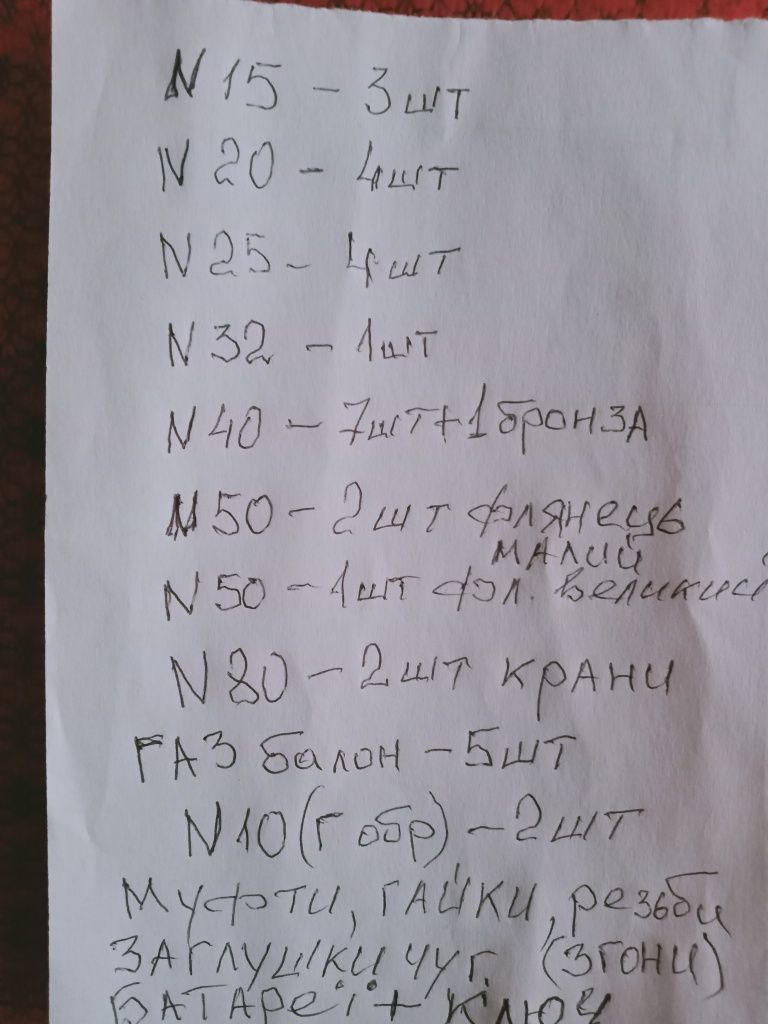 N 15 - 3 шт
N 20 - 4 шт
N 25 - 4 шт
N 32 - 1 шт
N 40 - 7 шт + 1 бронза
N 50 - 2 шт флянець
малий
N 50 - 1 шт фл. великий
N 80 - 2 шт крани
ГАЗ балон - 5 шт
N 10 (Г обр) - 2 шт
Муфти, гайки, резьби
Заглушки чуг. (згони)
Батареї + ключ